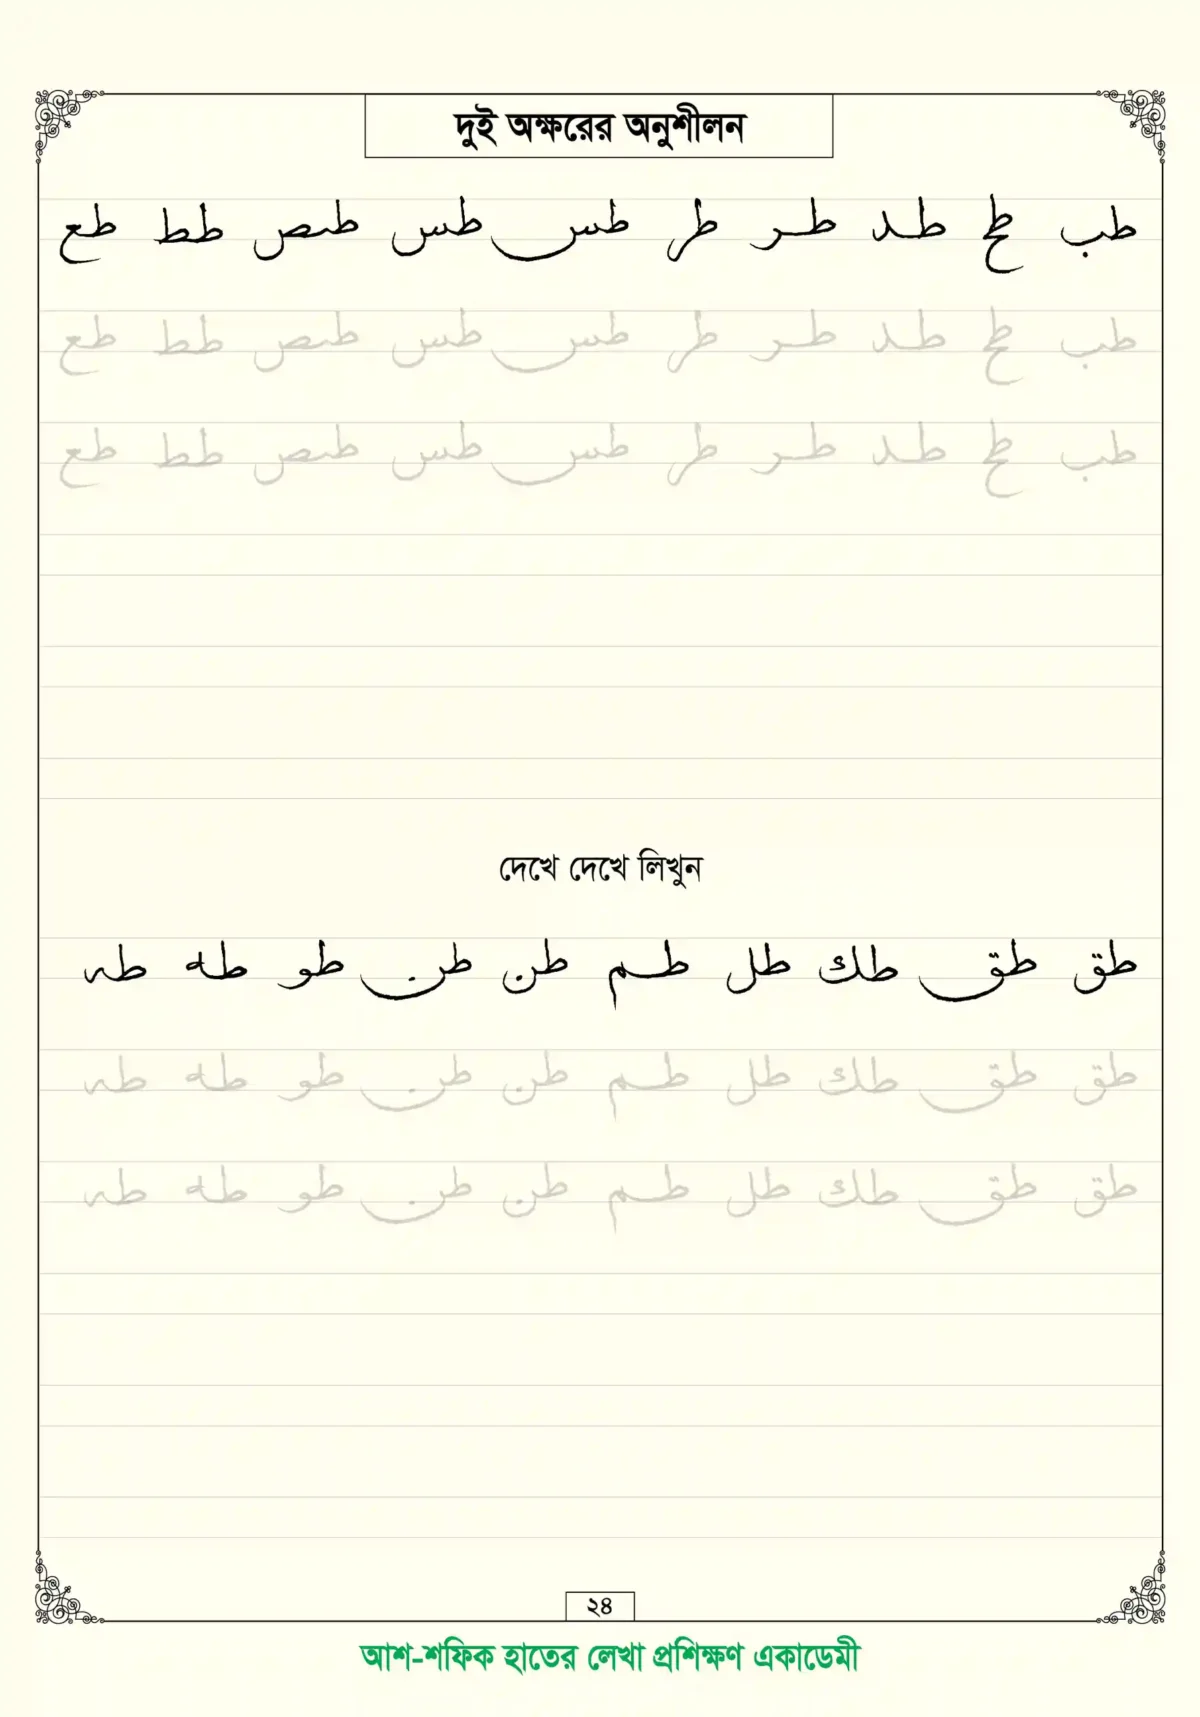 দুই অক্ষরের অনুশীলন
طب طح طد طر طر طس طس طص طط طع
طب طح طد طر طر طس طس طص طط طع
طب طح طد طر طر طس طس طص طط طع
দেখে দেখে লিখুন
طق طق طك طل طم طن طن طو طه طه
طق طق طك طل طم طن طن طو طه طه
طق طق طك طل طم طن طن طو طه طه
২৪
আশ-শফিক হাতের লেখা প্রশিক্ষণ একাডেমী